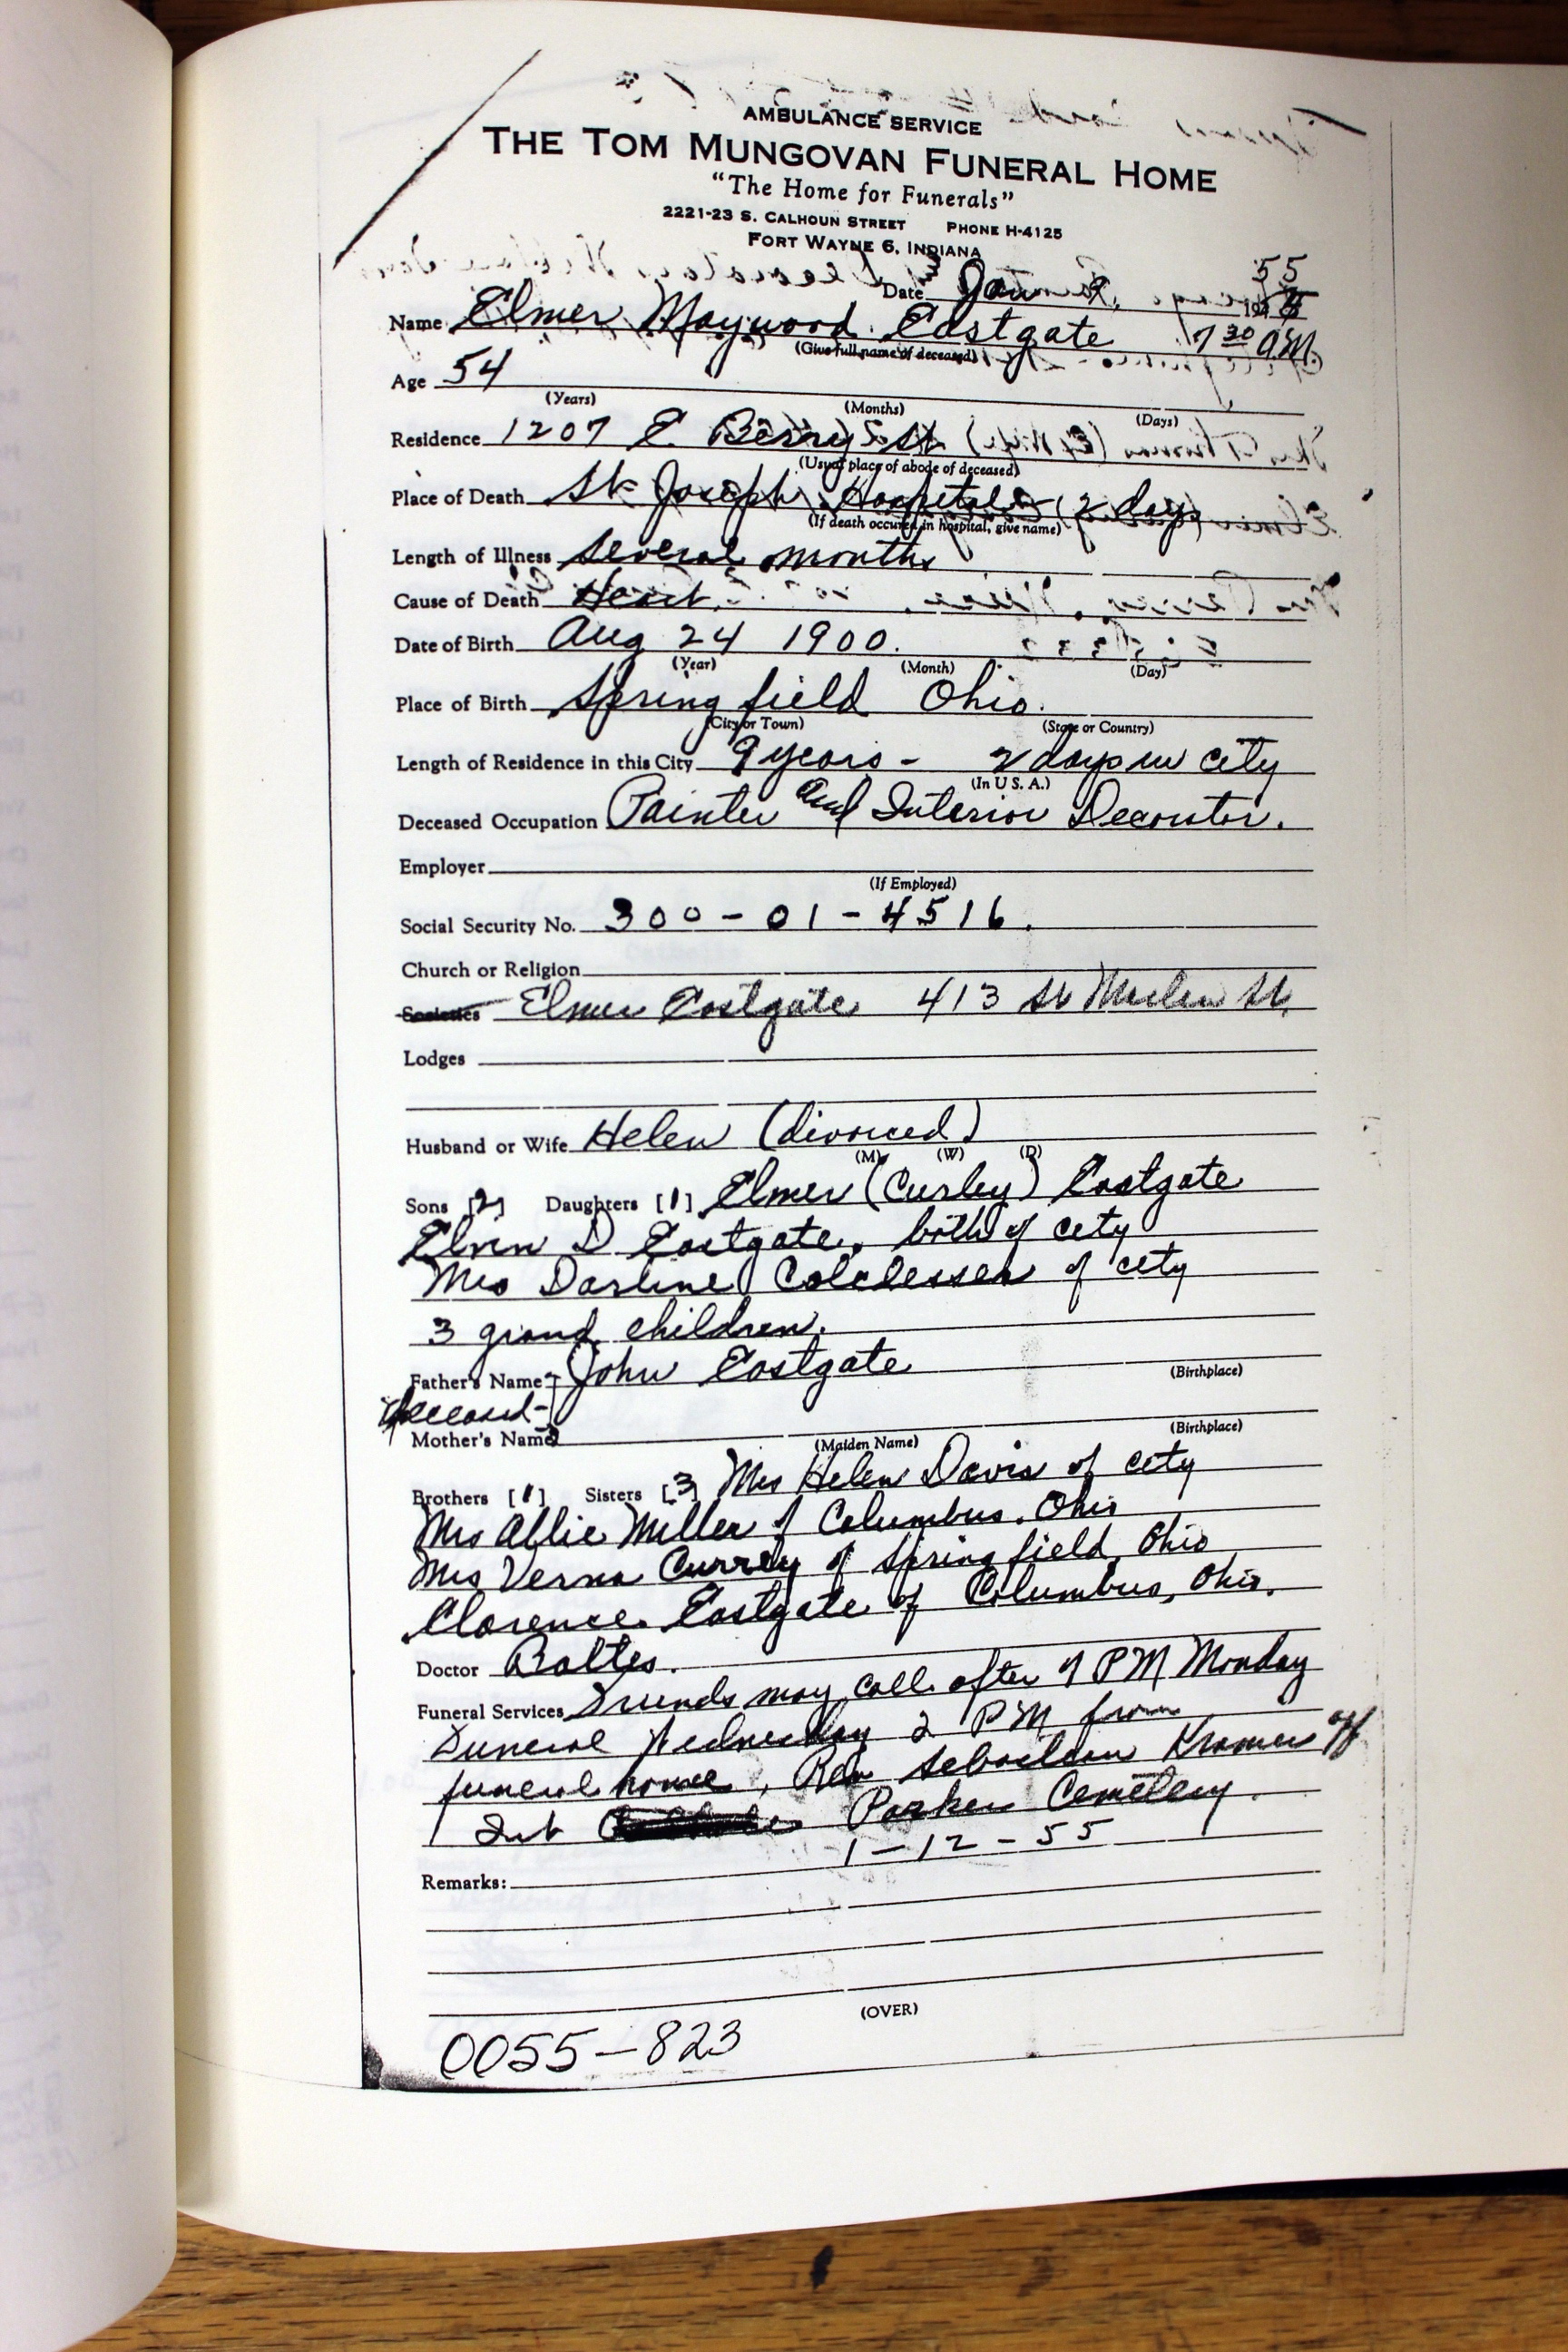 AMBULANCE SERVICE
THE TOM MUNGOVAN FUNERAL HOME
"The Home for Funerals"
2221-23 S. CALHOUN STREET PHONE H-4125
FORT WAYNE 6, INDIANA
Date Jan 9, 55
Name Elmer Maywood Eastgate 7 30 A.M.
(Give full name of deceased)
Age 54
(Years) (Months) (Days)
Residence 1207 E. Berry St
(Usual place of abode of deceased)
Place of Death St Joseph Hospital (2 days
(If death occured in hospital, give name)
Length of Illness Several months
Cause of Death Heart.
Date of Birth Aug 24 1900.
(Year) (Month) (Day)
Place of Birth Springfield Ohio.
(City or Town) (State or Country)
Length of Residence in this City 9 years - 2 days in city
(In U. S. A.)
Deceased Occupation Painter and Interior Decorator.
Employer
(If Employed)
Social Security No. 300-01-4516.
Church or Religion
Societies Elmer Eastgate 413 St
Lodges
Husband or Wife Helen (divorced)
(M) (W) (D)
Sons [2] Daughters [1] Elmer (Curley) Eastgate
D Eastgate, both of city
Mrs Darline of city
3 grand children.
Father's Name John Eastgate
(Birthplace)
deceased-
Mother's Name
(Maiden Name) (Birthplace)
Brothers [1] Sisters [3] Mrs Helen Davis of city
Mrs Allie Miller of Columbus, Ohio
Mrs Verna Currey of Springfield, Ohio
Clarence Eastgate of Columbus, Ohio.
Doctor Baltes.
Funeral Services Friends may call after 7 PM Monday
Funeral Wednesday 2 PM from
funeral home, Rev Sebastian Kramer off
Int Parker Cemetery.
1-12-55
Remarks:
(OVER)
0055-823